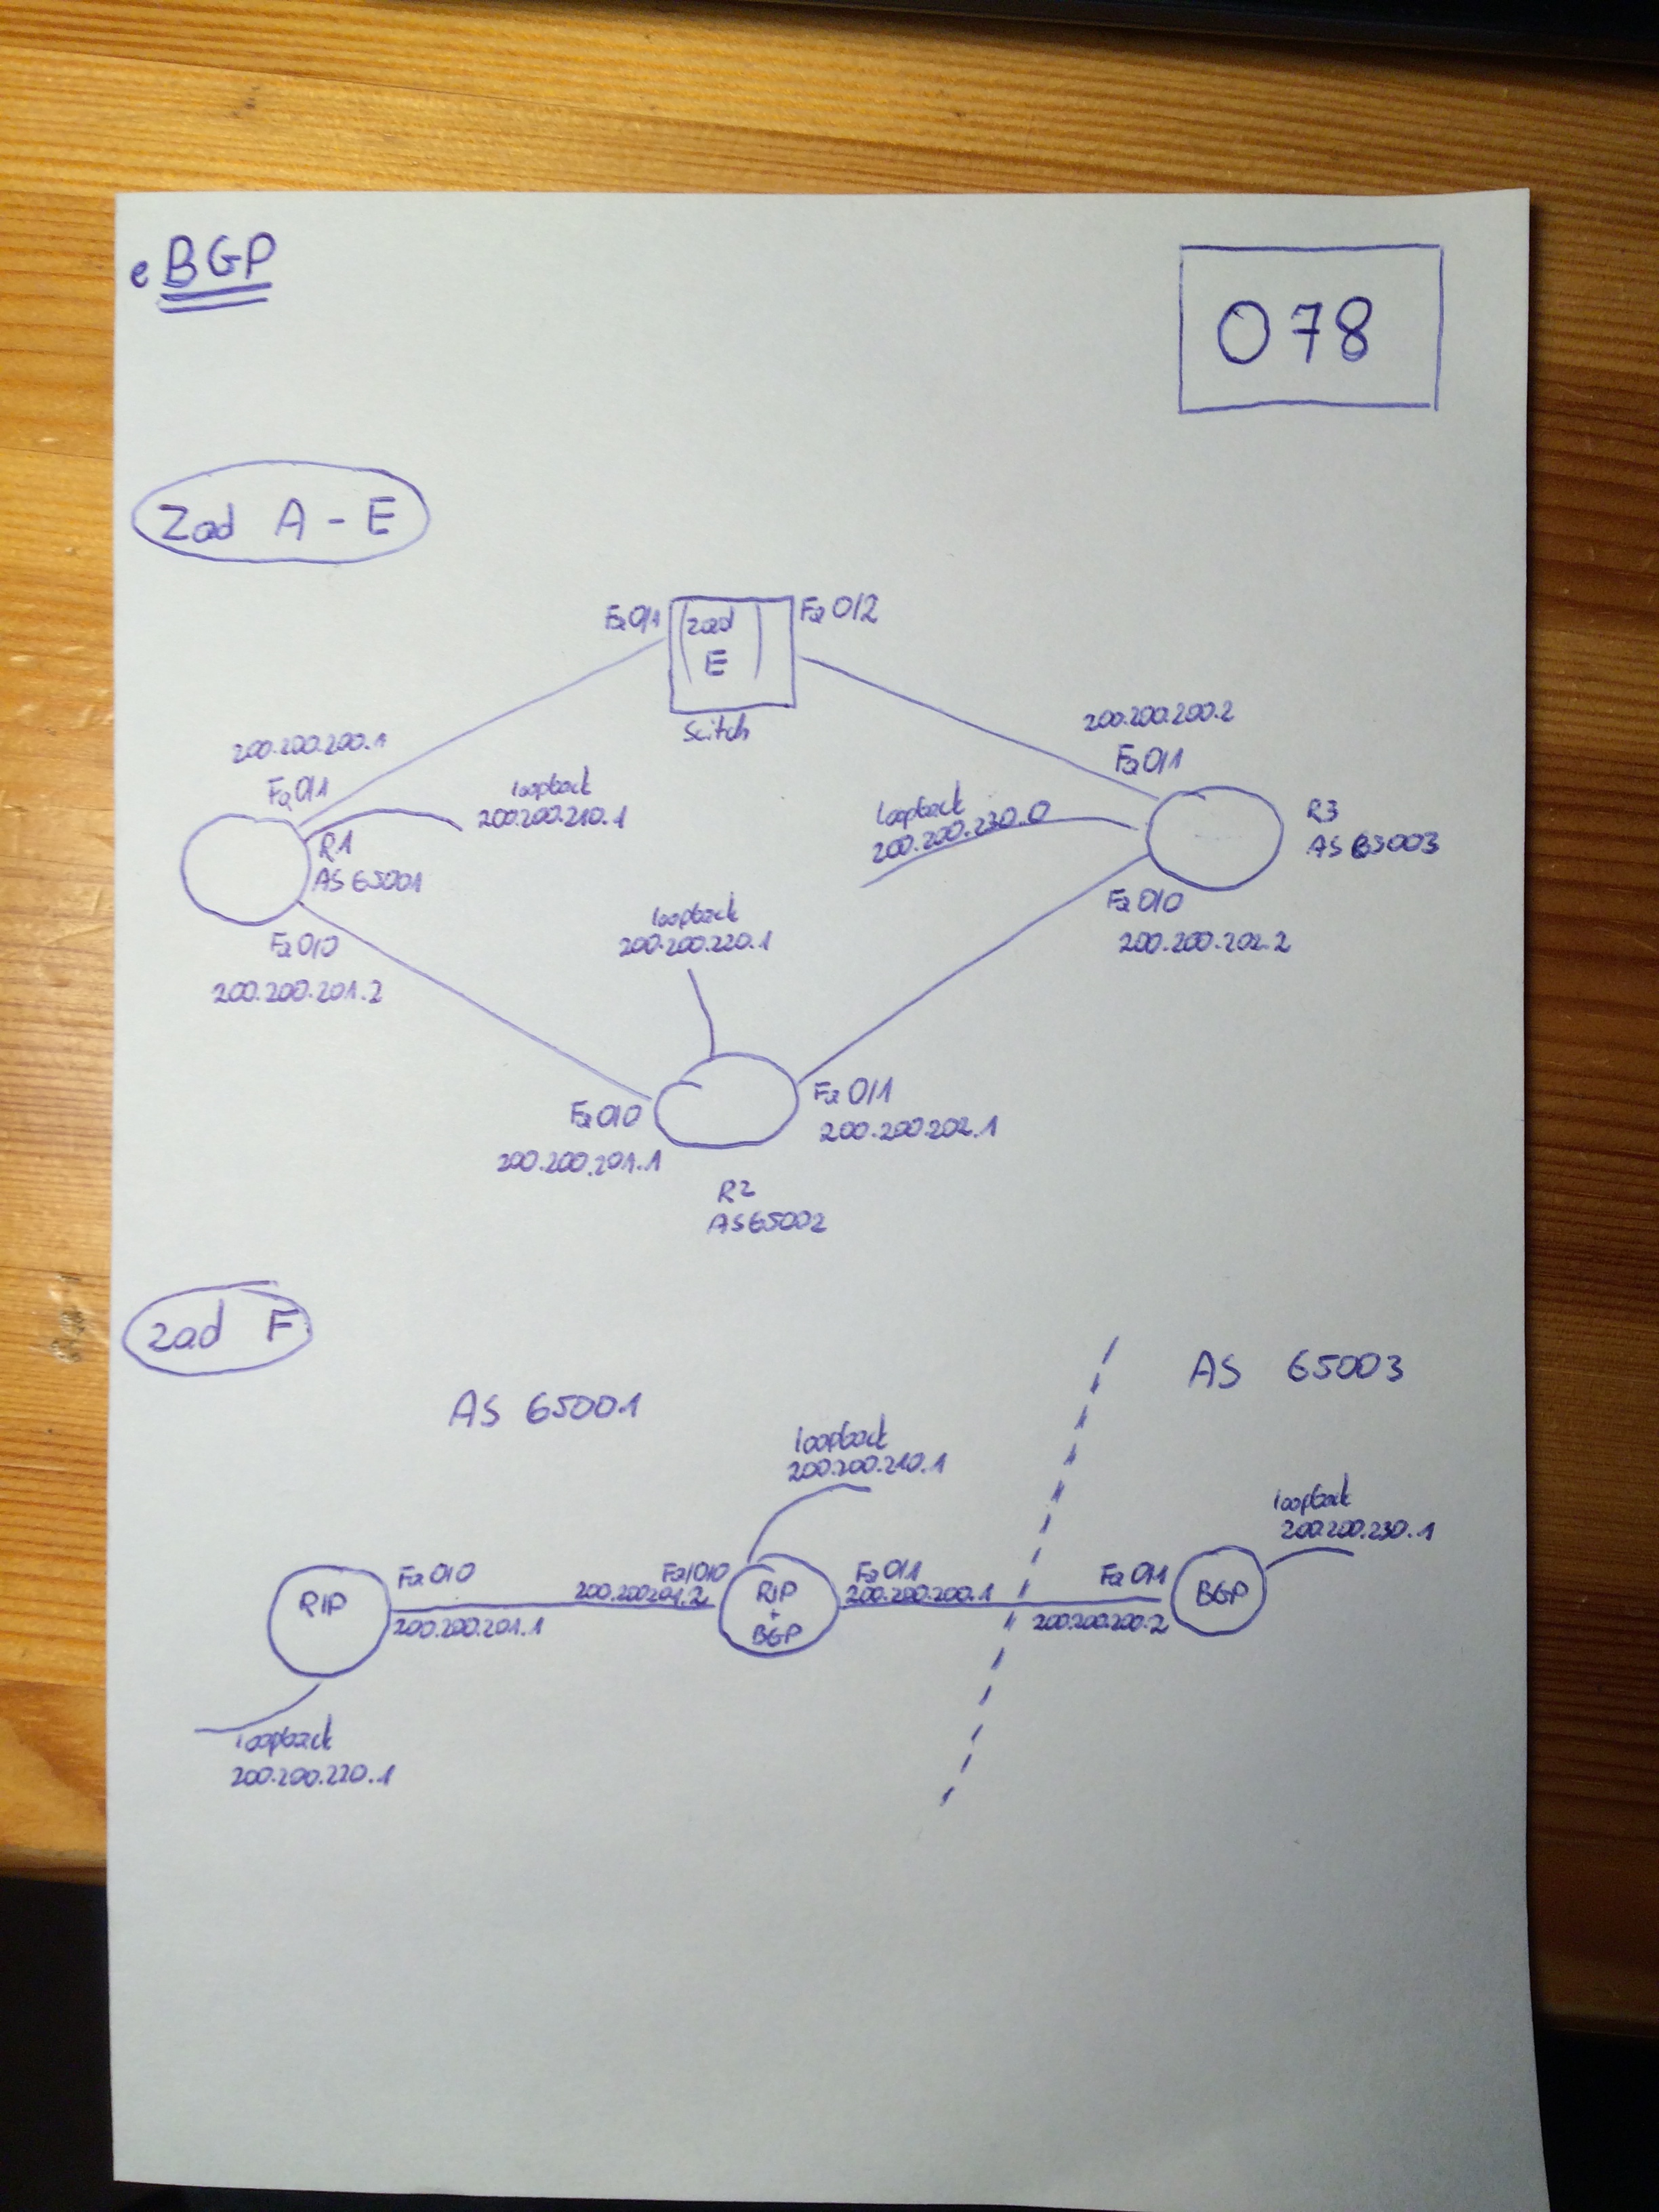 eBGP
078
Zad A - E
Fa0/1
zad
E
Fa 0/2
Scitch
200.200.200.1
Fa 0/1
loopback
200.200.210.1
R1
AS 65001
Fa 0/0
200.200.201.2
200.200.200.2
Fa 0/1
loopback
200.200.230.0
R3
AS 65003
Fa 0/0
200.200.202.2
loopback
200.200.220.1
Fa 0/0
200.200.201.1
Fa 0/1
200.200.202.1
R2
AS65002
zad F
AS 65001
AS 65003
loopback
200.200.210.1
loopback
200.200.230.1
RIP
Fa 0/0
200.200.201.1
Fa/0/0
200.200201.2
RIP
+
BGP
Fa 0/1
200.200.200.1
Fa 0/1
200.200.200.2
BGP
loopback
200.200.220.1